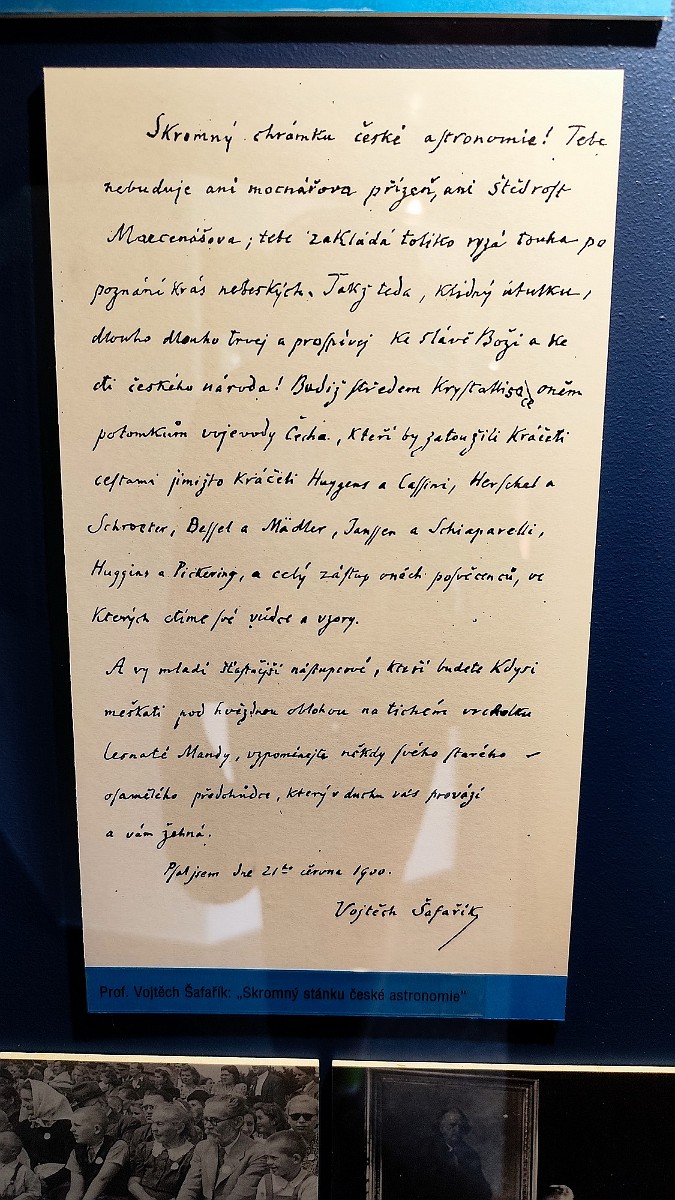 Skromný chrámku české astronomie! Tebe
nebuduje ani mocnářova přízeň, ani štědrost
Maecenášova; tebe zakládá toliko ryzá touha po
poznání krás nebeských. Takž teda, klidný útulku,
dlouho dlouho trvej a prospívej ke slávě Boží a ke
cti českého národa! Budiž středem krystallisace oněm
potomkům vojevody Čecha, kteří by zatoužili kráčeti
cestami jimižto kráčeli Huygens a Cassini, Herschel a
Schroeter, Bessel a Mädler, Janssen a Schiaparelli,
Huggins a Pickering, a celý zástup oněch posvěcenců, ve
kterých ctíme své vůdce a vzory.
A vy mladí šťastnější nástupcové, kteří budete kdysi
meškati pod hvězdnou oblohou na tichém vrcholku
lesnaté Mandy, vzpomínejte někdy svého starého
osamělého předchůdce, který v duchu vás provází
a vám žehná.
Psal jsem dne 21ho června 1900.
Vojtěch Šafařík
Prof. Vojtěch Šafařík: „Skromný stánku české astronomie"